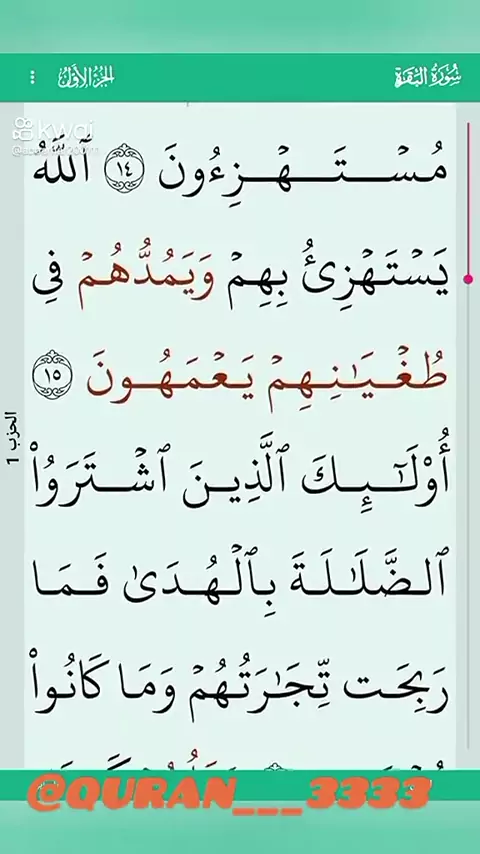 سُورَةُ البَقَرَةِ
الجُزْءُ الأَوَّلُ
kwai
مُسۡتَهۡزِءُونَ ١٤ ٱللَّهُ
يَسۡتَهۡزِئُ بِهِمۡ وَيَمُدُّهُمۡ فِي
طُغۡيَٰنِهِمۡ يَعۡمَهُونَ ١٥
أُوْلَٰٓئِكَ ٱلَّذِينَ ٱشۡتَرَوُاْ
ٱلضَّلَٰلَةَ بِٱلۡهُدَىٰ فَمَا
رَبِحَت تِّجَٰرَتُهُمۡ وَمَا كَانُواْ
الحزب 1
@QURAN___3333